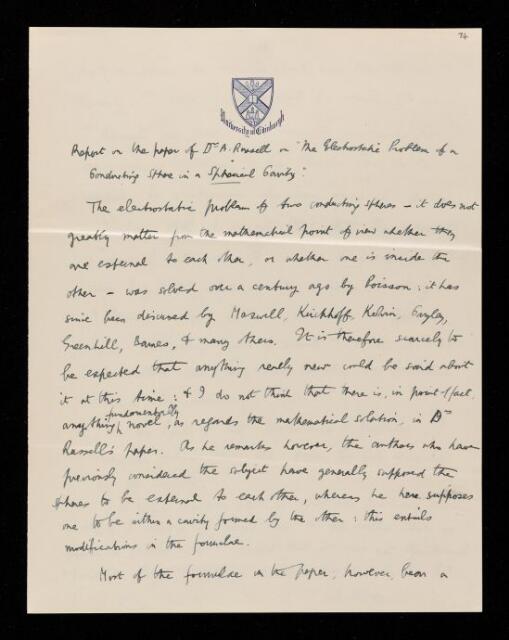 74
University of Edinburgh
Report on the paper of Dr A. Russell on "The Electrostatic Problem of a
Conducting Sphere in a Spherical Cavity".
The electrostatic problem of two conducting spheres – it does not
greatly matter from the mathematical point of view whether they
are external to each other, or whether one is inside the
other – was solved over a century ago by Poisson: it has
since been discussed by Maxwell, Kirchhoff, Kelvin, Cayley,
Greenhill, Barnes, & many others. It is therefore scarcely to
be expected that anything really new could be said about
it at this time: & I do not think that there is, in point of fact,
anything fundamentally novel, as regards the mathematical solution, in Dr
Russell's paper. As he remarks however, the authors who have
previously considered the subject have generally supposed the
spheres to be external to each other, whereas he here supposes
one to be within a cavity formed by the other: this entails
modifications in the formulae.
Most of the formulae in the paper, however, bear a